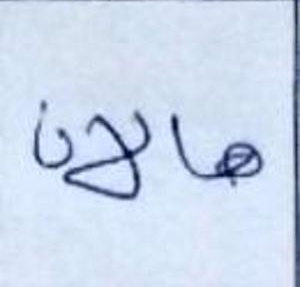 هالان